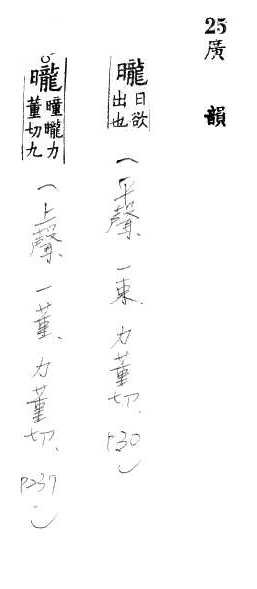 25
廣韻
曨日欲出也(平聲、一東、力董切、P30)
曨曈曨力董切九(上聲、一董、力董切、P237)